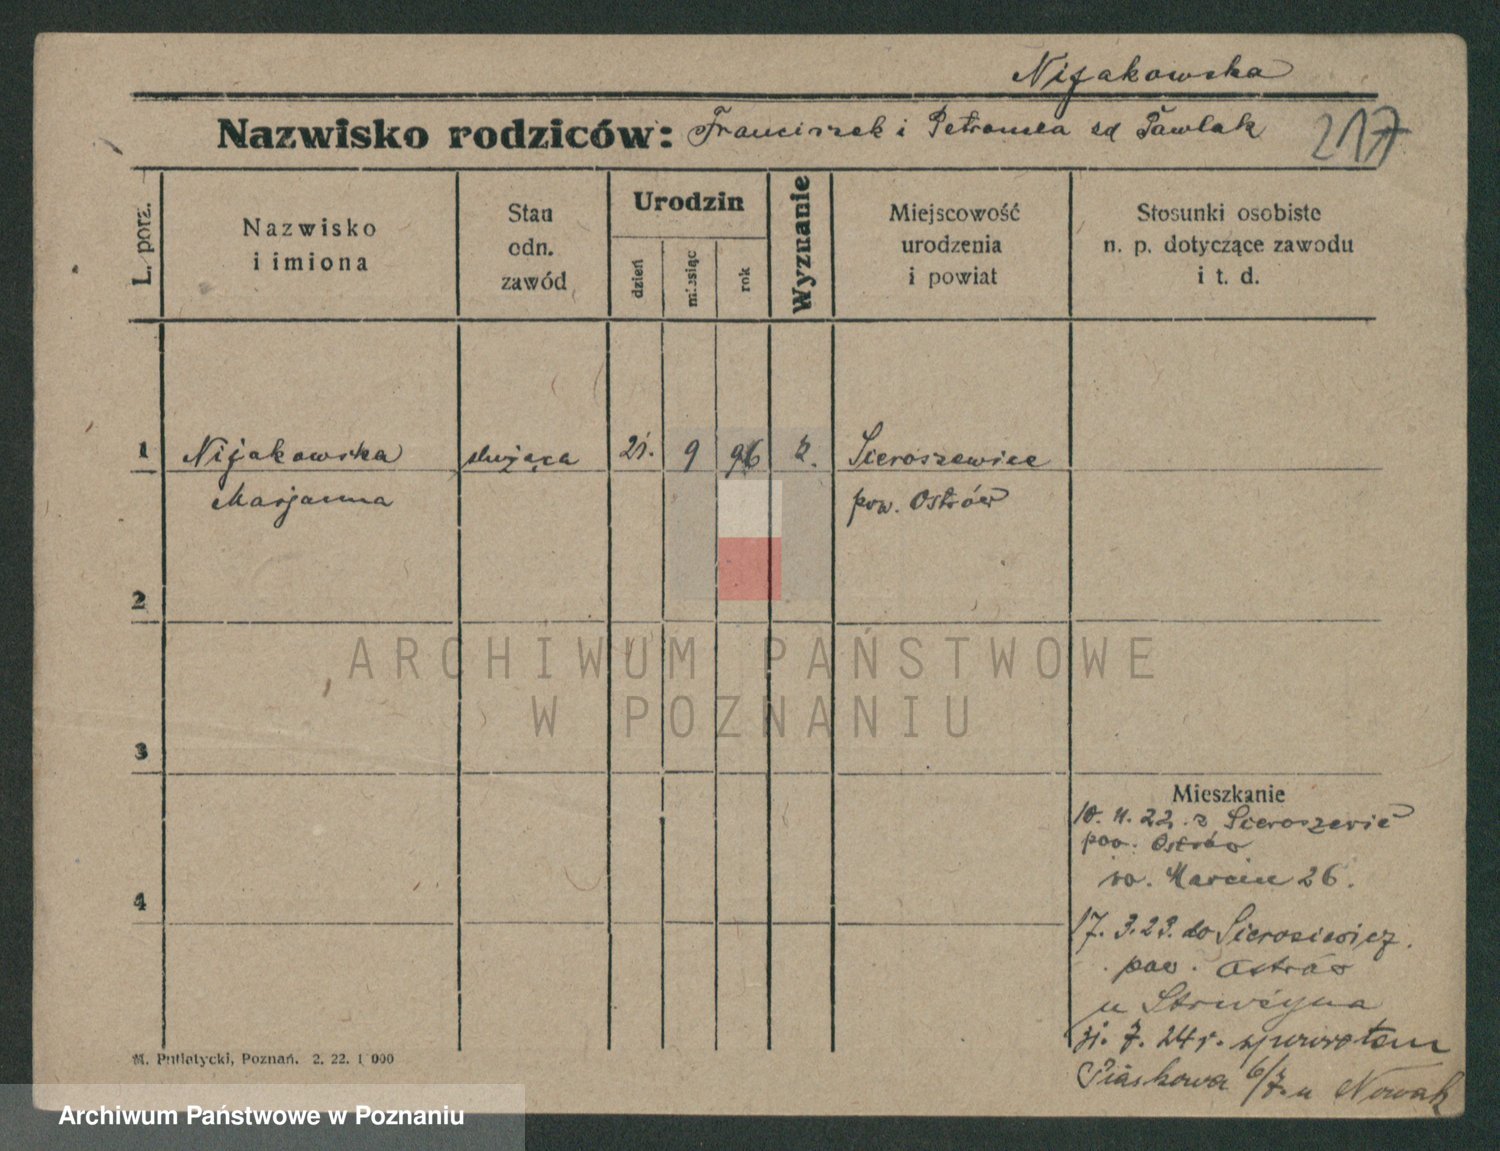 Nijakowska
Nazwisko rodziców: Franciszek i Petronela zd Pawlak
217
L. porz.
Nazwisko
i imiona
Stan
odn.
zawód
Urodzin
dzień
miesiąc
rok
Wyznanie
Miejscowość
urodzenia
i powiat
Stosunki osobiste
n. p. dotyczące zawodu
i t. d.
1 Nijakowska służąca 21. 9 96 Sieroszewice
Marjanna pow. Ostrów
2
ARCHIWUM PAŃSTWOWE
W POZNANIU
3
Mieszkanie
10. 4. 22. z Sieroszewic
pow. Ostrów
św. Marcin 26.
4
17. 3. 23. do Sieroszewicz.
pow. Ostrów
u
7. 24 r. zpowrotem
Piaskowa u Nowak
M. Putiatycki, Poznań. 2. 22. 1 000
Archiwum Państwowe w Poznaniu